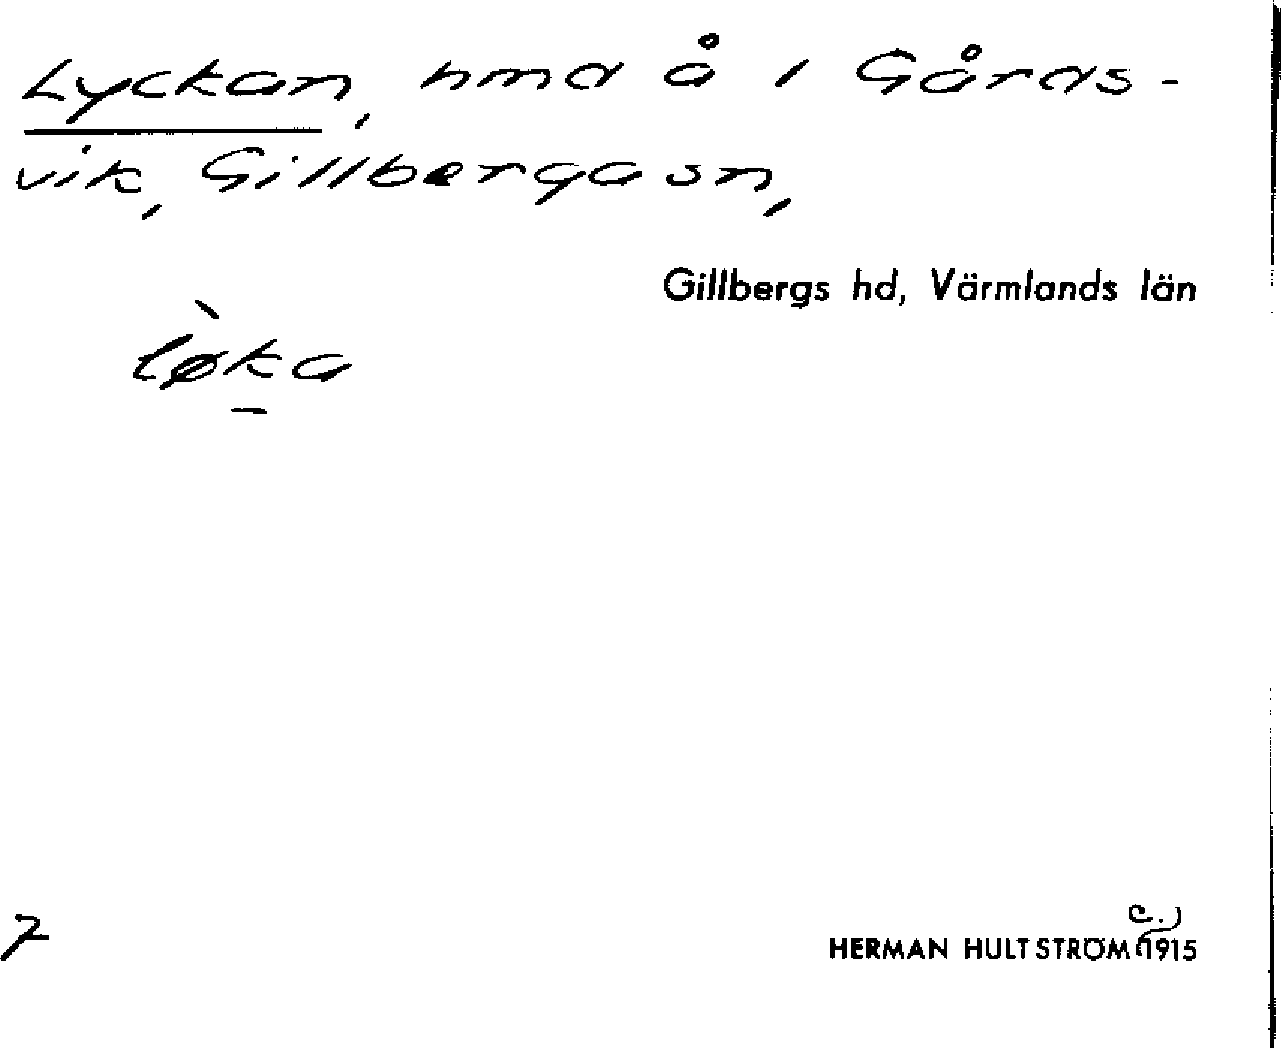 Lyckan, hmd å 1 Gårds-
vik, Gillbergasn,
Gillbergs hd, Värmlands län
lø̀ka
7
HERMAN HULTSTRÖM (c.) 1915